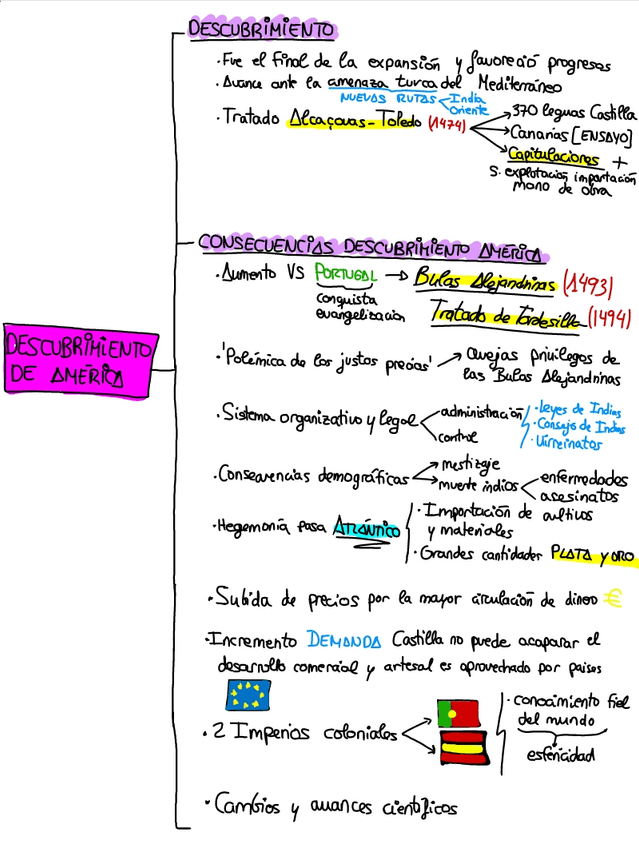 DESCUBRIMIENTO
DE AMÉRICA
DESCUBRIMIENTO
· Fue el final de la expansión y favoreció progresos
· Avance ante la amenaza turca del Mediterráneo
NUEVAS RUTAS India
Oriente
· Tratado Alcaçovas-Toledo (1474)
370 leguas Castilla
Canarias [ENSAYO]
Capitulaciones +
S. explotación importación
mano de obra
CONSECUENCIAS DESCUBRIMIENTO AMÉRICA
· Aumento VS PORTUGAL → Bulas Alejandrinas (1493)
conquista
evangelización
Tratado de Tordesilla (1494)
· 'Polémica de los justos precios' → Quejas privilegos de
las Bulas Alejandrinas
· Sistema organizativo y legal
administración
control
· Leyes de Indias
· Consejo de Indias
· Virreinatos
· Consecuencias demográficas
mestizaje
muerte indios
enfermedades
asesinatos
· Hegemonía pasa ATLÁNTICO
· Importación de cultivos
y materiales
· Grandes cantidades PLATA y ORO
· Subida de precios por la mayor circulación de dinero €
· Incremento DEMANDA Castilla no puede acaparar el
desarrollo comercial y artesal es aprovechado por paises
· 2 Imperios coloniales
· conocimiento fiel
del mundo
esfericidad
· Cambios y avances científicos